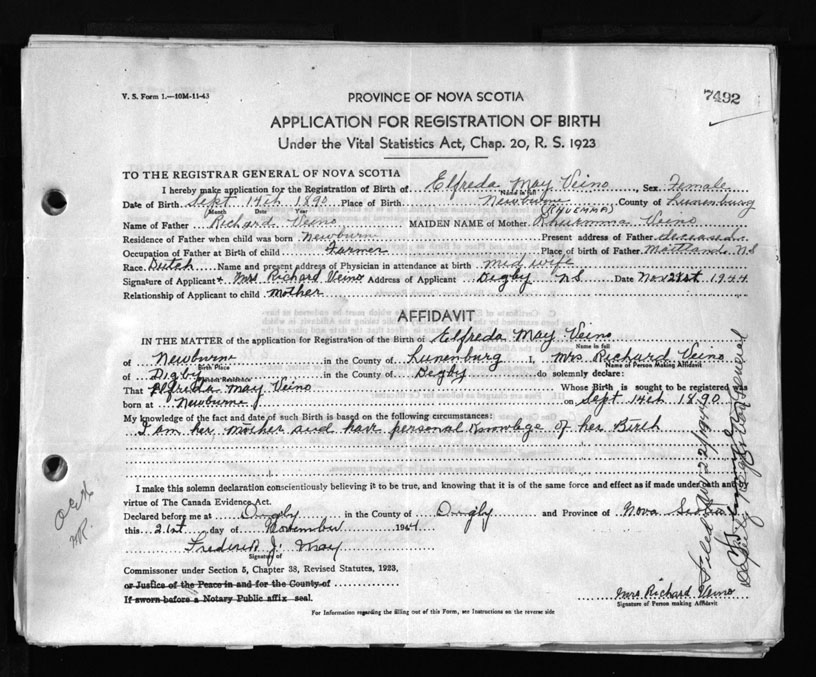 V. S. Form 1.—10M-11-43
PROVINCE OF NOVA SCOTIA
7492
APPLICATION FOR REGISTRATION OF BIRTH
Under the Vital Statistics Act, Chap. 20, R. S. 1923
TO THE REGISTRAR GENERAL OF NOVA SCOTIA
I hereby make application for the Registration of Birth of Elfreda May Veino, Sex Female
Name in full
Date of Birth Sept 14th 1890 Place of Birth Newburne County of Lunenburg
(Month Date Year
Name of Father Richard Veino MAIDEN NAME of Mother Veino
Residence of Father when child was born Newburn Present address of Father deceased
Occupation of Father at Birth of child Farmer Place of birth of Father Maitland N.S
Race Dutch Name and present address of Physician in attendance at birth mid wife
Signature of Applicant Mrs Richard Veino Address of Applicant Digby NS Date Nov 21st 1944
Relationship of Applicant to child Mother
AFFIDAVIT
IN THE MATTER of the application for Registration of the Birth of Elfreda May Veino
Name in full
of Newburne in the County of Lunenburg I, Mrs. Richard Veino
Birth Place
Name of Person Making Affidavit
of Digby in the County of Degby do solemnly declare:
Present Residence
That Elfreda May Veino Whose Birth is sought to be registered was
born at Newburne on Sept 14th 1890
My knowledge of the fact and date of such Birth is based on the following circumstances:
I am her mother and have personal knowlage of her Birth
I make this solemn declaration conscientiously believing it to be true, and knowing that it is of the same force and effect as if made under oath and by
virtue of The Canada Evidence Act.
Declared before me at Digby in the County of Digby and Province of Nova Scotia
this 21st day of November 1944
Frederick J. May
Signature of
Commissioner under Section 5, Chapter 38, Revised Statutes, 1923,
or Justice of the Peace in and for the County of
If sworn before a Notary Public affix seal.
Mrs Richard Veino
Signature of Person making Affidavit
For Information regarding the filling out of this Form, see Instructions on the reverse side
Filed Nov 22/1944
Deputy Registrar General